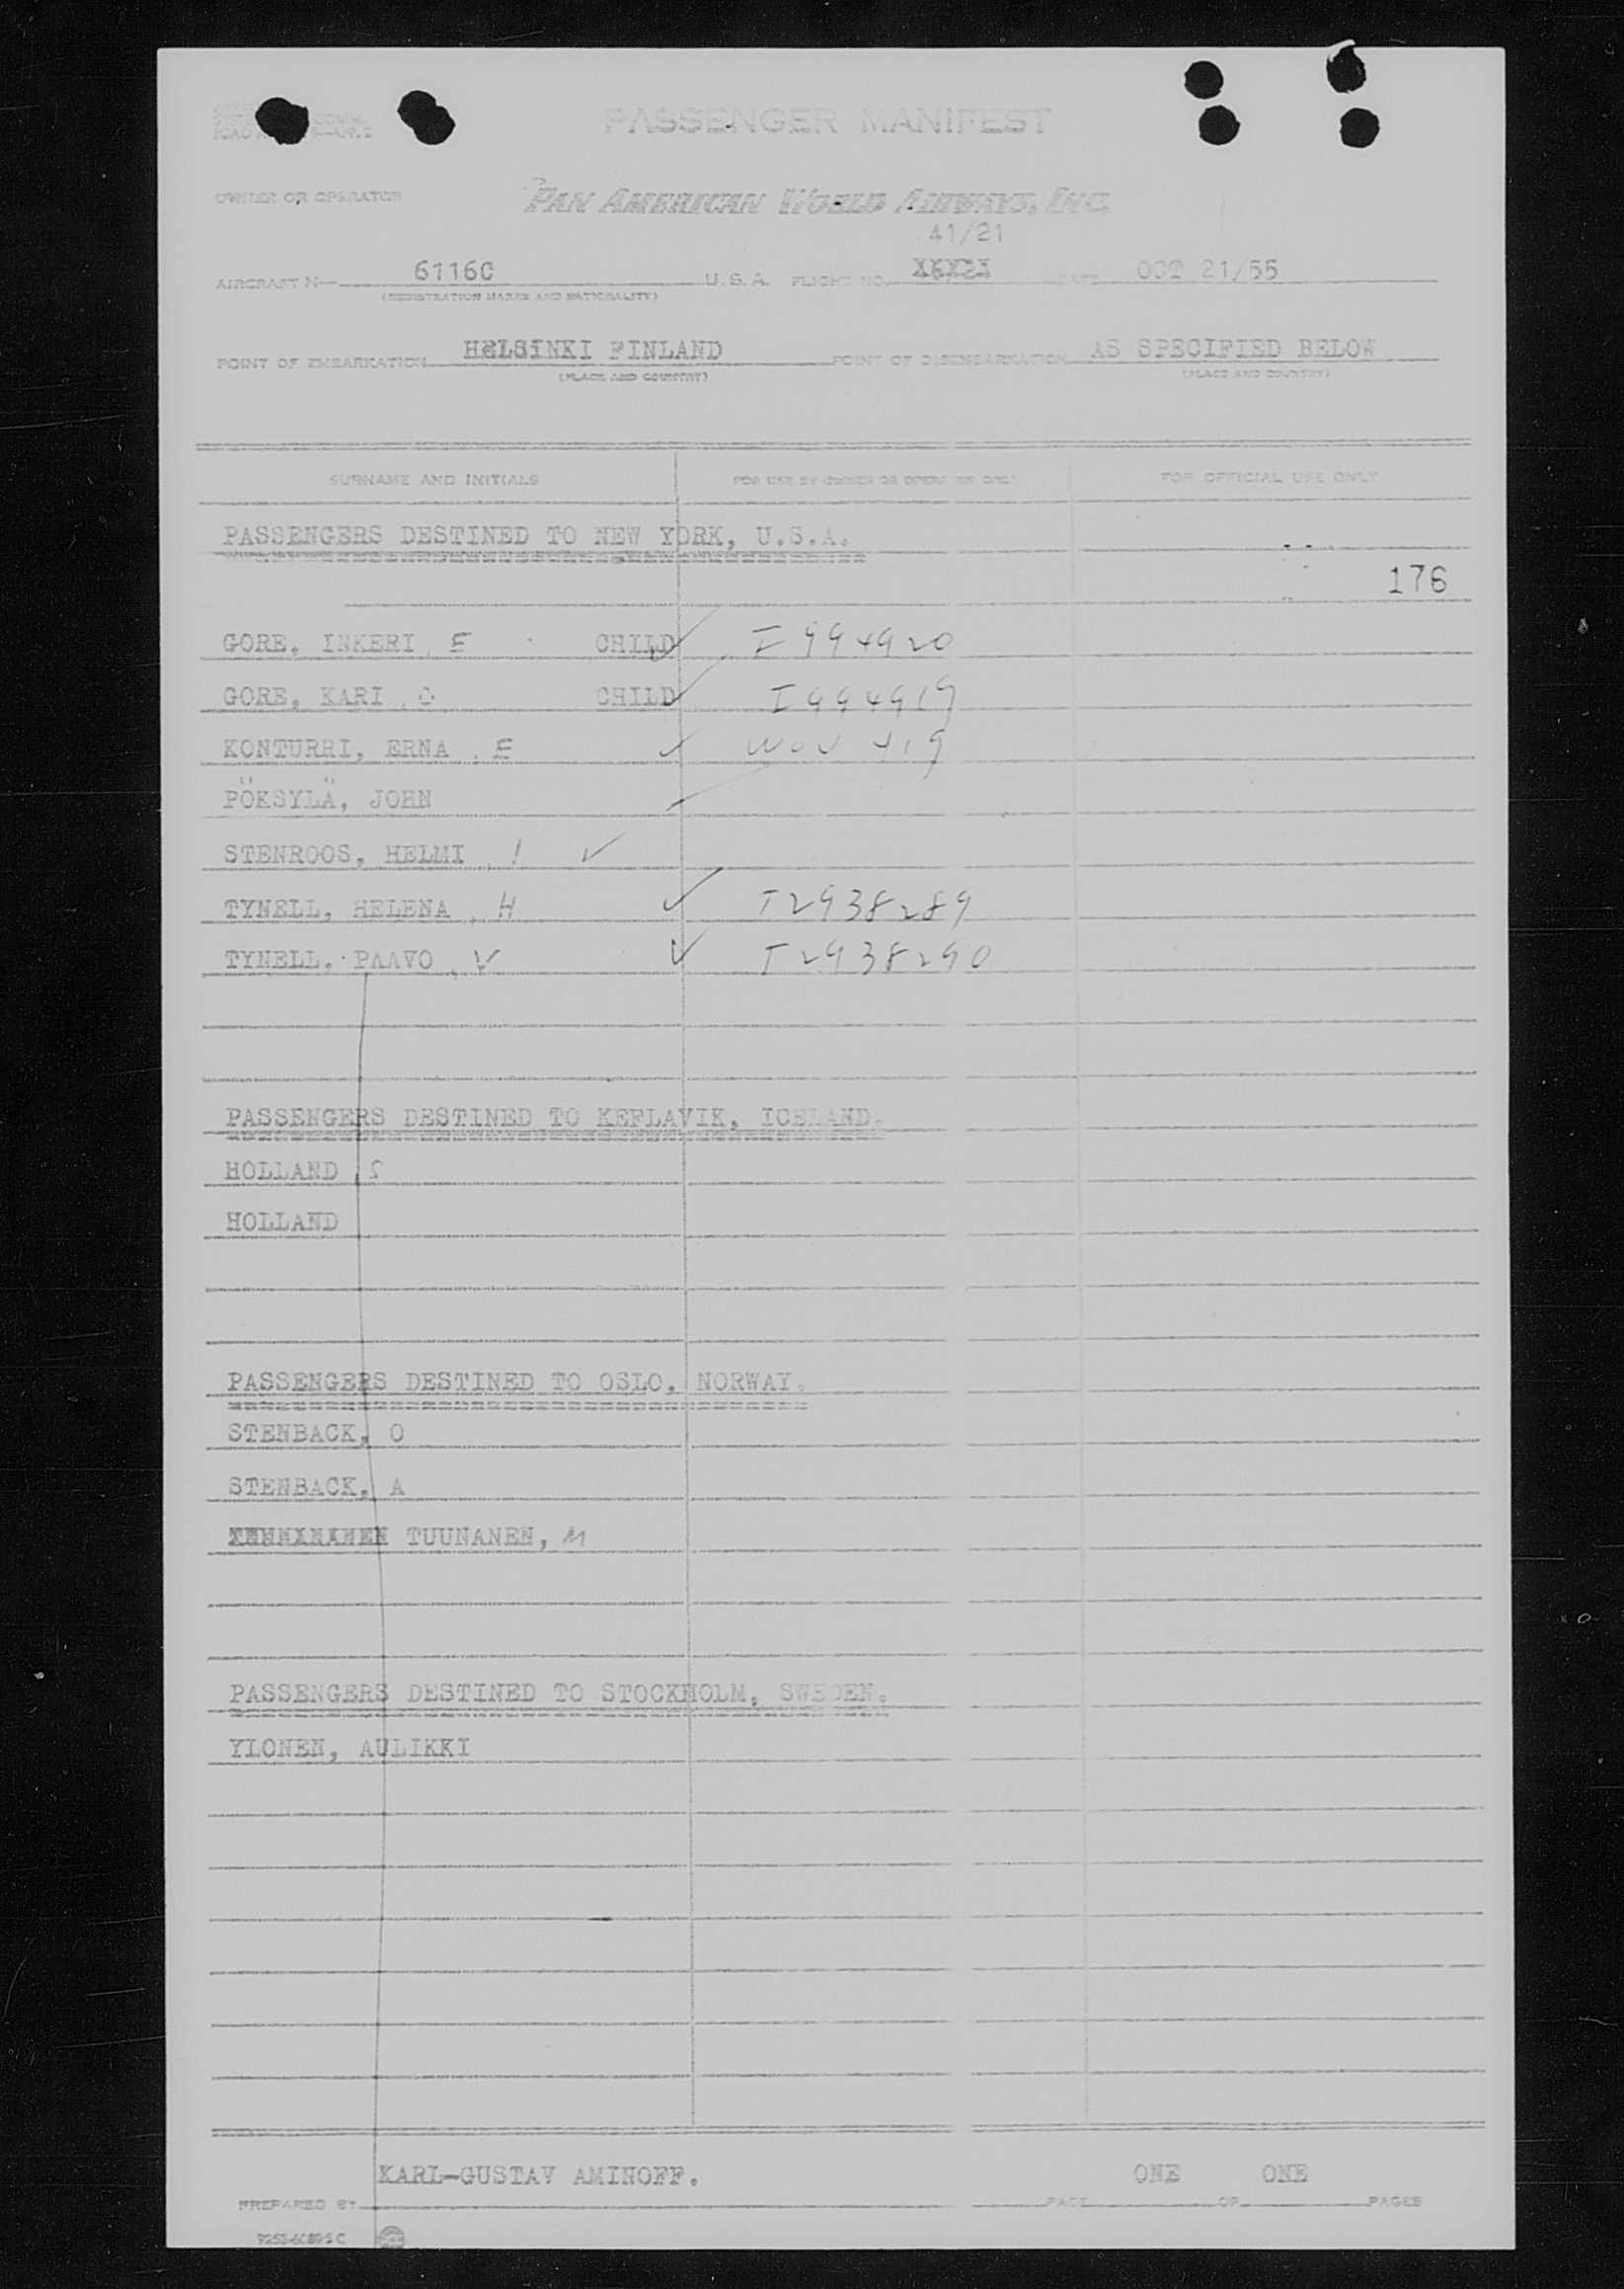 PASSENGER MANIFEST
OWNER OR OPERATOR PAN AMERICAN WORLD AIRWAYS, INC.
41/21
AIRCRAFT N— 6116C U.S.A. FLIGHT NO. DATE OCT 21/55
(REGISTRATION MARKS AND NATIONALITY)
POINT OF EMBARKATION HELSINKI FINLAND POINT OF DISEMBARKATION AS SPECIFIED BELOW
(PLACE AND COUNTRY) (PLACE AND COUNTRY)
SURNAME AND INITIALS FOR USE BY OWNER OR OPERATOR ONLY FOR OFFICIAL USE ONLY
PASSENGERS DESTINED TO NEW YORK, U.S.A.
176
GORE, INKERI, E CHILD ✓ I 994920
GORE, KARI, O CHILD ✓ I994919
KONTURRI, ERNA, E ✓ 419
PÖKSYLÄ, JOHN
STENROOS, HELMI, I ✓
TYNELL, HELENA, H ✓ I2938289
TYNELL, PAAVO, V ✓ I2938290
PASSENGERS DESTINED TO KEFLAVIK, ICELAND.
HOLLAND, S
HOLLAND
PASSENGERS DESTINED TO OSLO, NORWAY.
STENBACK, O
STENBACK, A
TUUNANEN, M
PASSENGERS DESTINED TO STOCKHOLM, SWEDEN.
YLONEN, AULIKKI
KARL-GUSTAV AMINOFF. ONE ONE
PREPARED BY PAGE OF PAGES